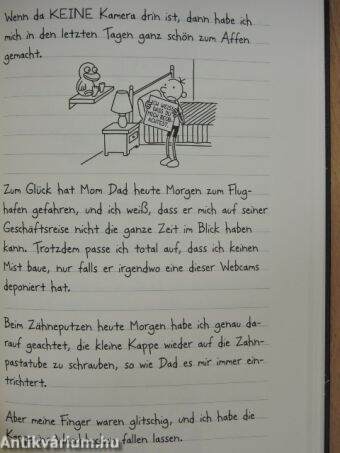 Wenn da KEINE Kamera drin ist, dann habe ich
mich in den letzten Tagen ganz schön zum Affen
gemacht.
ICH WEISS,
DASS DU
MICH BEOB-
ACHTEST.
Zum Glück hat Mom Dad heute Morgen zum Flug-
hafen gefahren, und ich weiß, dass er mich auf seiner
Geschäftsreise nicht die ganze Zeit im Blick haben
kann. Trotzdem passe ich total auf, dass ich keinen
Mist baue, nur falls er irgendwo eine dieser Webcams
deponiert hat.
Beim Zähneputzen heute Morgen habe ich genau da-
rauf geachtet, die kleine Kappe wieder auf die Zahn-
pastatube zu schrauben, so wie Dad es mir immer ein-
trichtert.
Aber meine Finger waren glitschig, und ich habe die
fallen lassen.
Antikvarium.hu